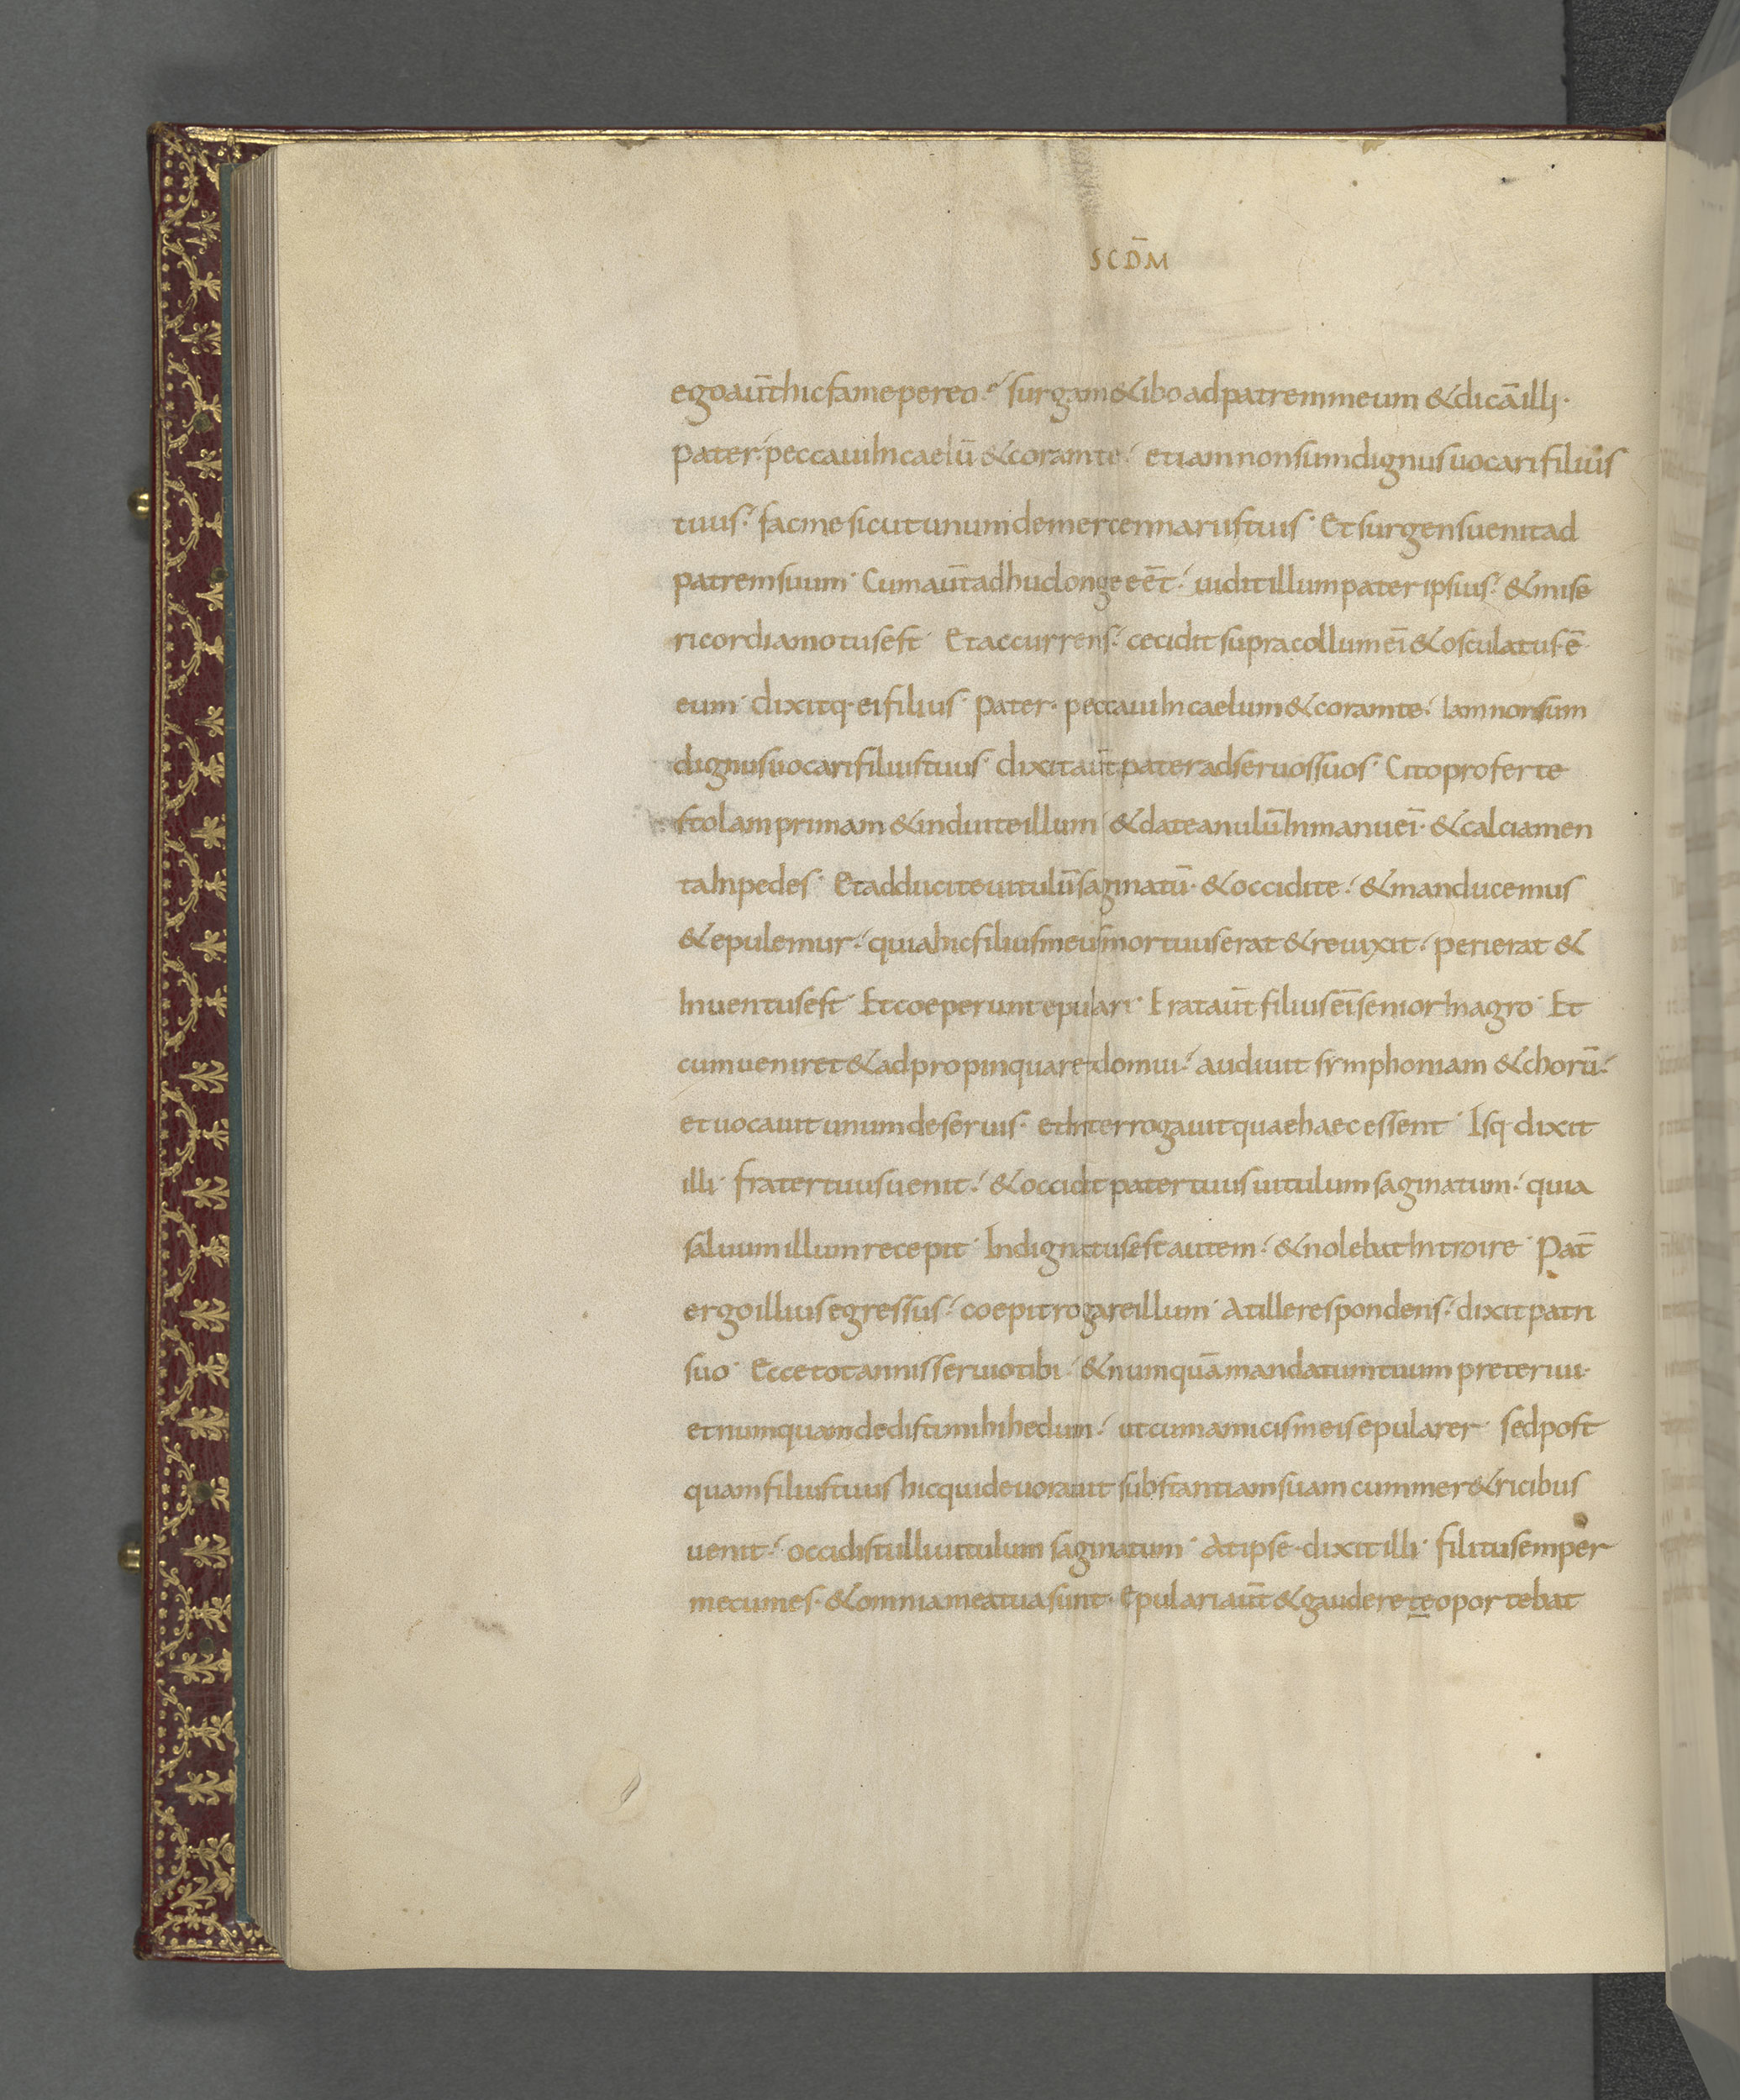 SCD̄M
ego aūt hic fame pereo. surgam & ibo ad patrem meum & dicā illi.
pater. peccaui in caelū & coram te. etiam non sum dignus uocari filius
tuus. fac me sicut unum de mercennariis tuis. Et surgens uenit ad
patrem suum. Cum aūt adhuc longe eēt. uidit illum pater ipsius. & mise
ricordia motus est. Et accurrens. cecidit supra collum eī & osculatus ē
eum. dixitq. ei filius. pater. peccaui in caelum & coram te. Iam non sum
dignus uocari filius tuus. dixit aūt pater ad seruos suos. Cito proferte
stolam primam & induite illum. & date anulū in manu eī. & calciamen
ta in pedes. Et adducite uitulū saginatū. & occidite. & manducemus
& epulemur. quia hic filius meus mortuus erat & reuixit. perierat &
Inuentus est. Et coeperunt epulari. Erat aūt filius eī senior in agro. Et
cum ueniret & adpropinquaret domui. audiuit symphoniam & chorū.
et uocauit unum de seruis. et interrogauit quae haec essent. Isq. dixit
illi. frater tuus uenit. & occidit pater tuus uitulum saginatum. quia
saluum illum recepit. Indignatus est autem. & nolebat introire. Pat̄
ergo illius egressus. coepit rogare illum. At ille respondens. dixit patri
suo. Ecce tot annis seruio tibi. & numquā mandatum tuum preteriui.
et numquam dedisti mihi hedum. ut cum amicis meis epularer. sed post
quam filius tuus hic qui deuorauit substantiam suam cum mer&ricibus
uenit. occidisti illi uitulum saginatum. At ipse. dixit illi. fili tu semper
mecum es. & omnia mea tua sunt. Epulari aūt & gaudere te oportebat